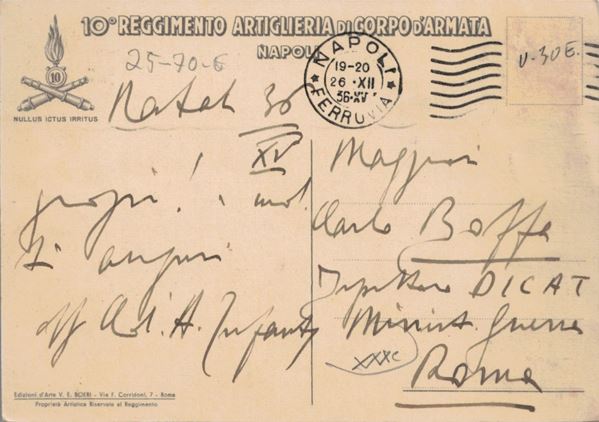 10º REGGIMENTO ARTIGLIERIA DI CORPO D'ARMATA
NAPOLI
10
NULLUS ICTUS IRRITUS
25-70-6
NAPOLI
19-20
26 · XII
36-XV
FERROVIA
V-30E.
Natale 36
XV
Maggiori
auguri
Carlo Boffa
DICAT
Minist. Guerra
Roma
XXXC
Edizioni d'Arte V. E. BOERI - Via F. Corridoni, 7 - Roma
Proprietà Artistica Riservata al Reggimento